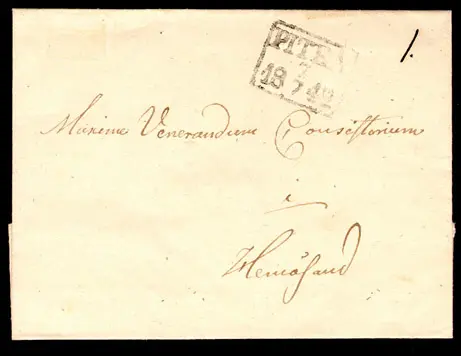 PITEÅ
7
18 7 42
1.
Maxime Venerandum Consistorium
à
Hernösand